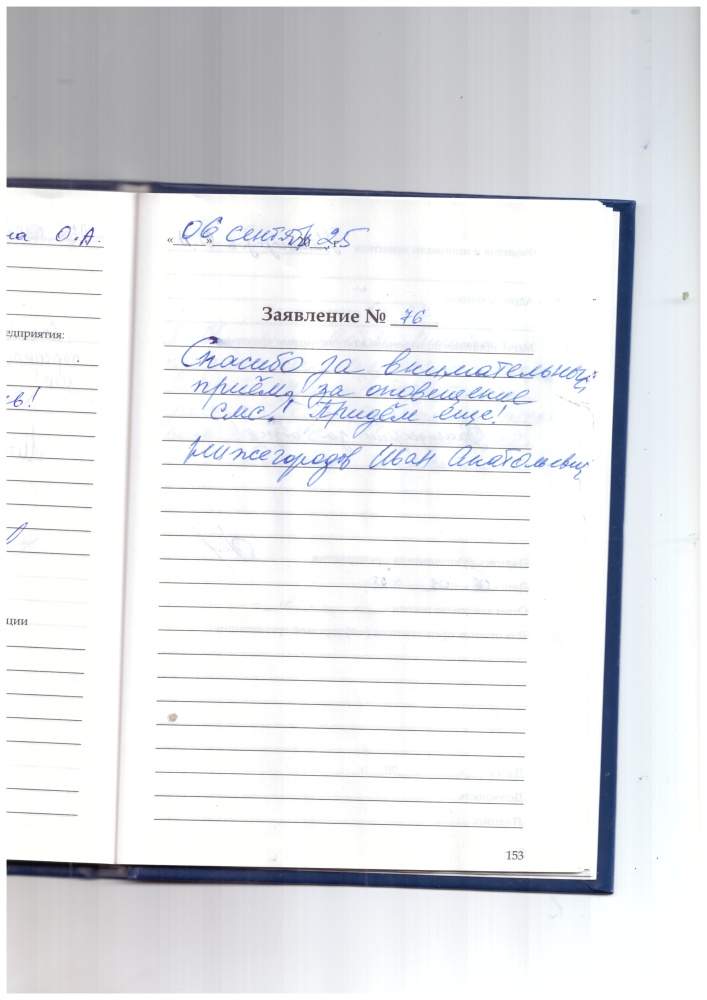 на О.А.
едприятия:
ов!
ции
« 06 » сентяб 2025
Заявление № 76
Спасибо за внимательный
приём, за оповещение
смс! Придём еще!
Нижегородов Иван Анатольевич
153